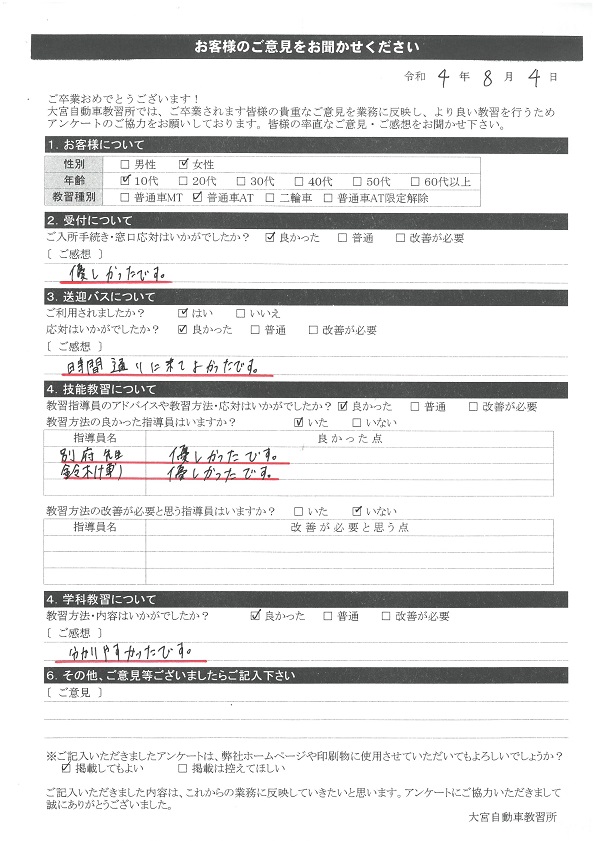 お客様のご意見をお聞かせください
令和 4 年 8 月 4 日
ご卒業おめでとうございます！
大宮自動車教習所では、ご卒業されます皆様の貴重なご意見を業務に反映し、より良い教習を行うため
アンケートのご協力をお願いしております。皆様の率直なご意見・ご感想をお聞かせ下さい。
1. お客様について
性別 □ 男性 ☑ 女性
年齢 ☑ 10代 □ 20代 □ 30代 □ 40代 □ 50代 □ 60代以上
教習種別 □ 普通車MT ☑ 普通車AT □ 二輪車 □ 普通車AT限定解除
2. 受付について
ご入所手続き・窓口応対はいかがでしたか？ ☑ 良かった □ 普通 □ 改善が必要
〔 ご感想 〕
優しかったです。
3. 送迎バスについて
ご利用されましたか？ ☑ はい □ いいえ
応対はいかがでしたか？ ☑ 良かった □ 普通 □ 改善が必要
〔 ご感想 〕
時間通りに来てよかったです。
4. 技能教習について
教習指導員のアドバイスや教習方法・応対はいかがでしたか？ ☑ 良かった □ 普通 □ 改善が必要
教習方法の良かった指導員はいますか？ ☑ いた □ いない
指導員名 良かった点
別府先生 優しかったです。
鈴木 優しかったです。
教習方法の改善が必要と思う指導員はいますか？ □ いた ☑ いない
指導員名 改善が必要と思う点
4. 学科教習について
教習方法・内容はいかがでしたか？ ☑ 良かった □ 普通 □ 改善が必要
〔 ご感想 〕
分かりやすかったです。
6. その他、ご意見等ございましたらご記入下さい
〔 ご意見 〕
※ご記入いただきましたアンケートは、弊社ホームページや印刷物に使用させていただいてもよろしいでしょうか？
☑ 掲載してもよい □ 掲載は控えてほしい
ご記入いただきました内容は、これからの業務に反映していきたいと思います。アンケートにご協力いただきまして
誠にありがとうございました。
大宮自動車教習所